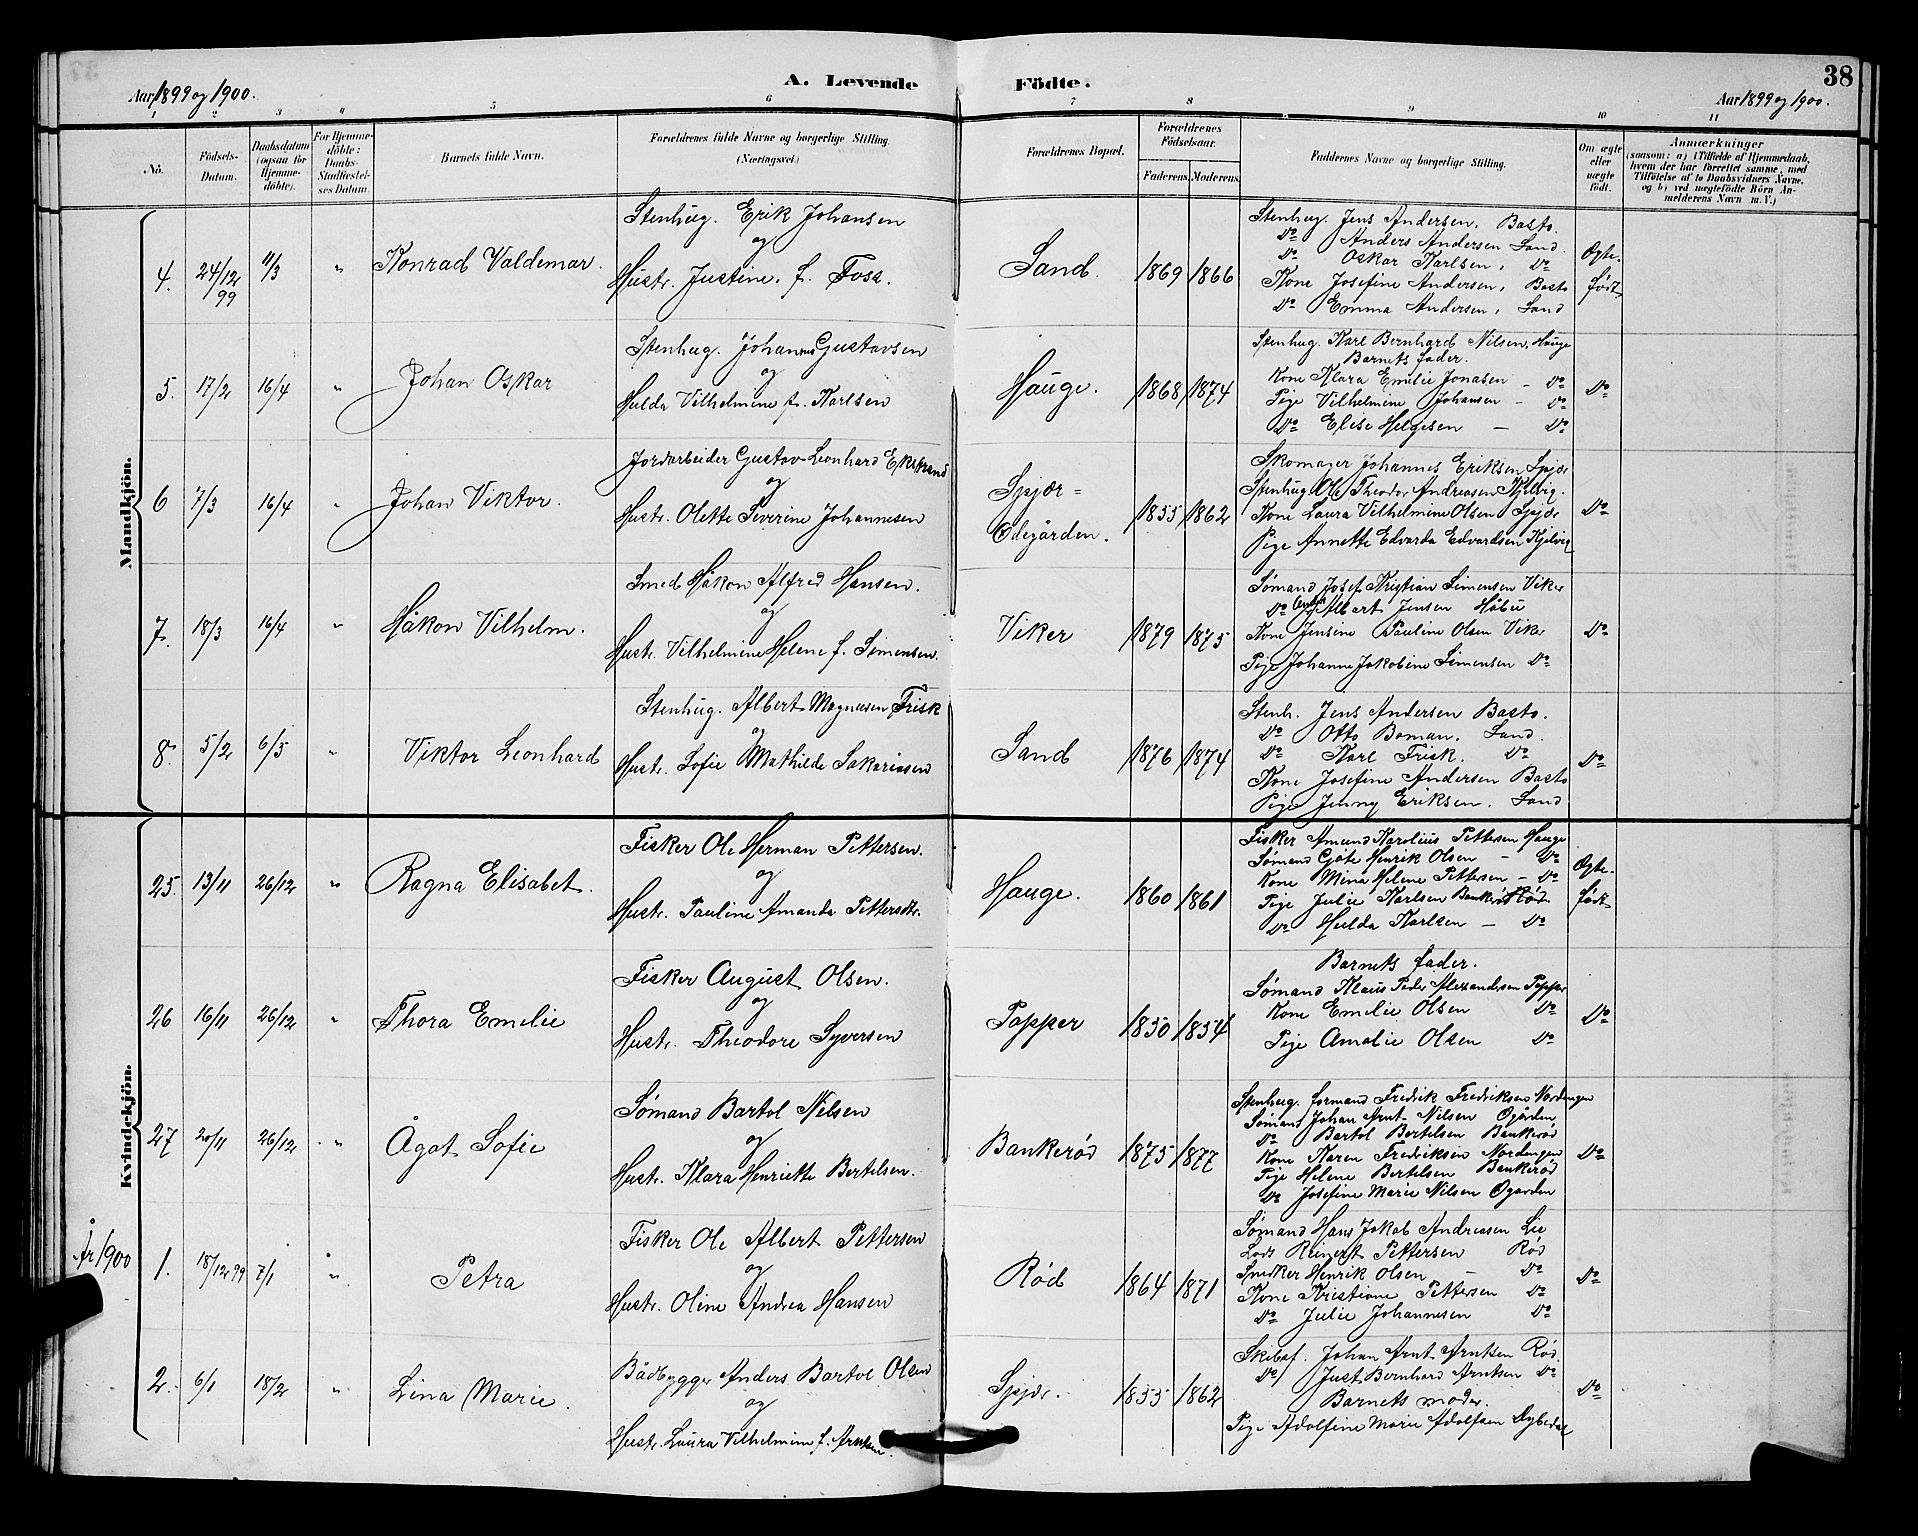 Aar 1899 og 1900.
A. Levende Födte.
38
Aar 1899 og 1900.
1 2 3 4 5 6 7 8 9 10 11
No.
Födsels-Datum.
Daabsdatum (ogsaa for Hjemmedöbte).
For Hjemmedöbte: Daabs-Stadfæstelses Datum.
Barnets fulde Navn.
Forældrenes fulde Navne og borgerlige Stilling (Næringsvei.)
Forældrenes Bopæl.
Forældrenes Födselsaar.
Faderens. Moderens.
Faddernes Navne og borgerlige Stilling.
Om ægte eller uægte födt.
Anmærkninger
(saasom: a) i Tilfælde af Hjemmedaab, hvem der har forrettet samme, med Tilföielse af to Daabsvidners Navne, og b) ved uægtefödte Börn Anmelderens Navn m. V.)
Mandkjön.
4. 24/12 99 11/3 " Konrad Valdemar.
Stenhug. Erik Johansen
og
Hustr. Justine, f. Foss.
Sand. 1869 1866
Stenhug. Jens Andersen. Basto.
Do Anders Andersen Sand.
Do Oskar Karlsen, Do
Kone Josefine Andersen, Basto
Do Emma Andersen, Sand
Ægte-født
5. 17/2 16/4 " Johan Oskar
Stenhug. Johannes Gustavsen
og
Hulda Vilhelmine f. Karlsen
Hauge. 1868 1874
Stenhug. Karl Bernhard Nilsen, Hauge
Barnets fader.
Kone Klara Emilie Jonasen - Do
Pige Vilhelmine Johansen - Do
Do Elise Helgesen - Do
Do
6 7/3 16/4 " Johan Viktor.
Jordarbeider Gustav Leonhard Ekstrand
og
Hustr. Olette Severine Johannesen
Spjær=
Ødegården. 1855 1862
Skomager Johannes Eriksen Spjær
Stenhug Ole Theodor Andreasen Kjølvig.
Kone Laura Vilhelmine Olsen Spjær
Pige Annette Edvarda Edvardsen Kjølvig
Do
7. 18/3 16/4 " Håkon Vilhelm.
Smed Håkon Alfred Hansen.
og
Hustr. Vilhelmine Helene f. Simensen.
Viker 1879 1875
Sømand Josef Kristian Simensen Viker
Do Albert Jensen Håbu
Kone Jensine Pauline Olsen Viker
Pige Johanne Jakobine Simensen Do
Do
8. 5/2 6/5 " Viktor Leonhard
Stenhug. Albert Magnusen Frisk
og
Hustr. Sofie Mathilde Sakariasen
Sand 1876 1874
Stenh. Jens Andersen Basto.
Do Otto Boman. Sand.
Do Karl Frisk. Do
Kone Josefine Andersen Basto
Pige Jenny Eriksen. Sand
Do
Kvindekjön.
25. 13/11 26/12 " Ragna Elisabet.
Fisker Ole Herman Pettersen.
og
Hustr. Pauline Amanda Pettersdtr.
Hauge. 1860 1861
Fisker Amund Karelius Pettersen Hauge
Sømand Gjøte Henrik Olsen - Do
Kone Mina Helene Pettersen - Do
Pige Julie Karlsen Bankerød
Do Hulda Karlsen - Do
Ægte-født
26 16/11 26/12 " Thora Emilie
Fisker August Olsen.
og
Hustr. Theodore Syversen
Papper 1850 1854
Barnets fader.
Sømand Klaus Peder Alexandersen Papper
Kone Emilie Olsen Do
Pige Amalie Olsen Do
Do
27 20/11 26/12 " Ågot Sofie
Sømand Bartol Nilsen
og
Hustr. Klara Henriette Bertelsen.
Bankerød 1875 1877
Stenhug. formand Fredrik Fredriksen Nordengen
Sømand Johan Arnt Nilsen Øgården
Do Bartol Bertelsen Bankerød
Kone Karen Fredriksen Nordengen
Pige Helene Bertelsen Bankerød
Do Josefine Marie Nilsen Øgarden
Do
År 1900
1. 18/12 99 7/1 " Petra
Fisker Ole Albert Pettersen
og
Hustr. Oline Andrea Hansen
Rød 1864 1871
Sømand Hans Jakob Andreasen Lie
Lods Reinert Pettersen Rød
Snedker Henrik Olsen - Do
Kone Kristiane Pettersen Do
Do Julie Johannesen Do
Do
2. 6/1 18/2 " Lina Marie.
Bådbygger Anders Bartol Olsen
og
Hustr. Laura Vilhelmine f. Arntsen.
Spjær. 1855 1862
Skibsf. Johan Arnt Arntsen Rød
Do Just Bernhard Arntsen Do
Barnets moder.
Pige Adolfine Marie Adolfsen Dybedal
Do